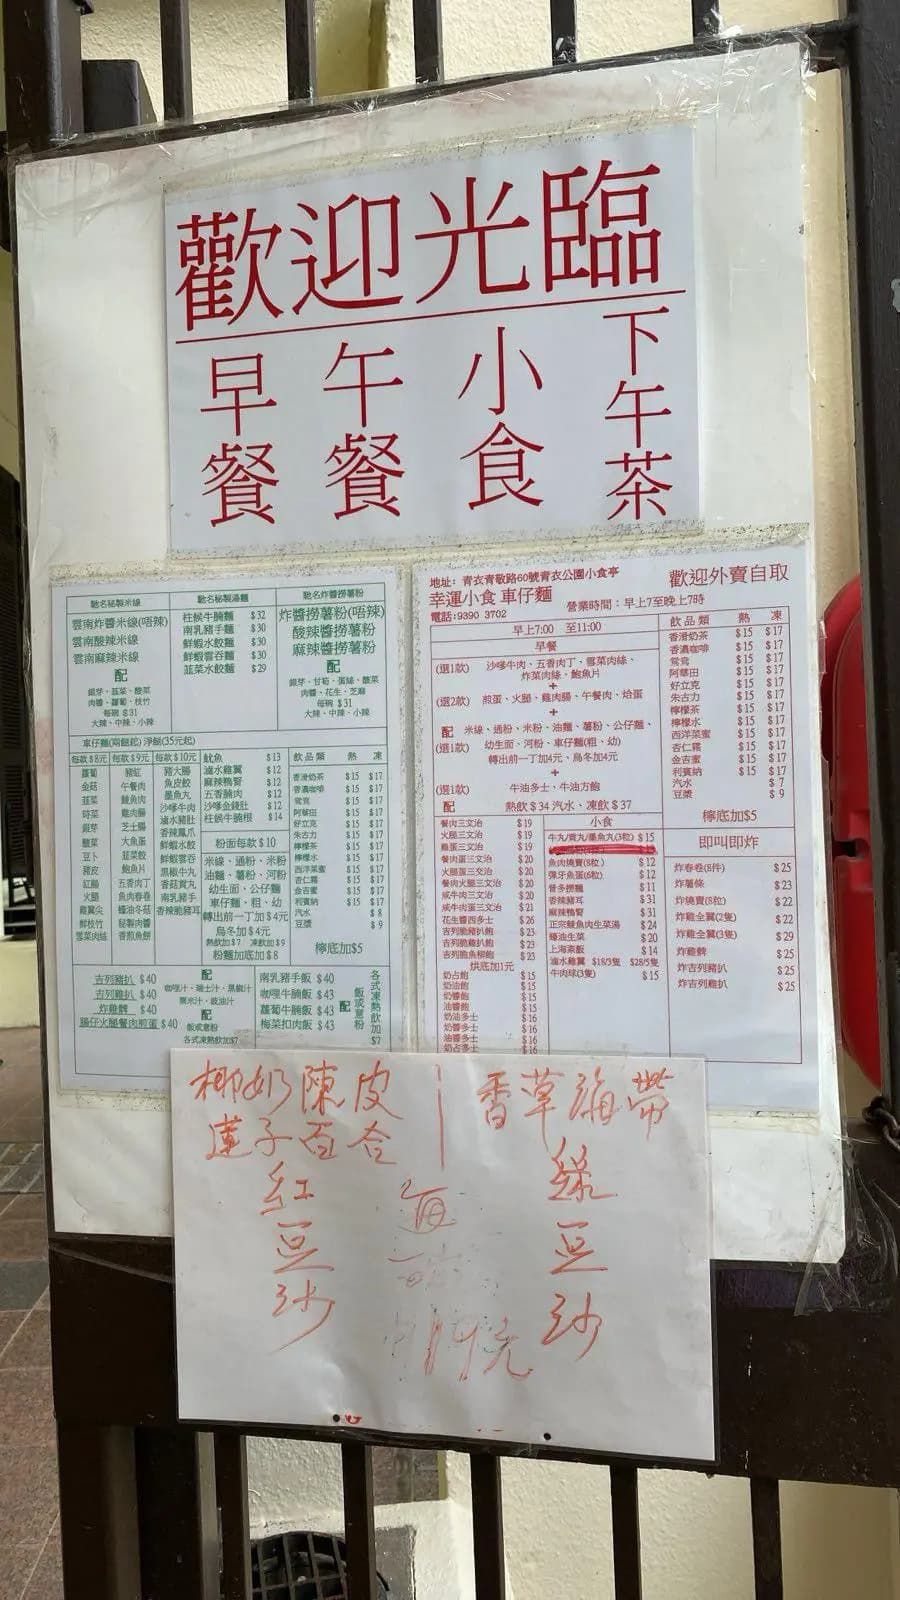 歡迎光臨
早餐 午餐 小食 下午茶
馳名秘製米線
雲南炸醬米線(唔辣)
雲南酸辣米線
雲南麻辣米線
配
銀芽、韮菜、酸菜
肉醬、蘿蔔、枝竹
每碗 $31
大辣、中辣、小辣
馳名秘製湯麵
柱侯牛腩麵 $32
南乳豬手麵 $30
鮮蝦水餃麵 $30
鮮蝦雲吞麵 $30
韮菜水餃麵 $29
馳名炸醬撈薯粉
炸醬撈薯粉(唔辣)
酸辣醬撈薯粉
麻辣醬撈薯粉
配
銀芽、甘筍、蛋絲、酸菜
肉醬、花生、芝麻
每碗 $31
大辣、中辣、小辣
車仔麵(兩餸起) 淨餸(35元起)
每款$8元
蘿蔔
金菇
韮菜
時菜
銀芽
酸菜
豆卜
豬皮
紅腸
火腿
雞翼尖
鮮枝竹
雪菜肉絲
每款$9元
豬紅
午餐肉
鯪魚肉
雞肉腸
芝士腸
大魚蛋
韮菜餃
五香肉丁
魚肉春卷
蠔油冬菇
秘製肉醬
香煎魚餅
每款$10元
豬大腸
魚皮餃
墨魚丸
沙嗲牛肉
滷水豬肚
香辣鳳爪
鮮蝦水餃
鮮蝦雲吞
黑椒牛丸
香菇貢丸
南乳豬手
香辣脆豬耳
魷魚 $13
滷水雞翼 $12
麻辣鴨腎 $12
五香腩肉 $12
沙嗲金錢肚 $12
柱候牛腩根 $14
粉面每款$10
米線、通粉、米粉
油麵、薯粉、河粉
幼生面、公仔麵
車仔麵、粗、幼
轉出前一丁加$4元
烏冬加$4元
熱飲加$7 凍飲加$9
粉麵加底加$8
飲品類 熱 凍
香滑奶茶 $15 $17
香濃咖啡 $15 $17
鴛鴦 $15 $17
阿華田 $15 $17
好立克 $15 $17
朱古力 $15 $17
檸檬茶 $15 $17
檸檬水 $15 $17
西洋菜蜜 $15 $17
杏仁霜 $15 $17
金吉蜜 $15 $17
利賓納 $15 $17
汽水 $8
豆漿 $9
檸底加$5
吉列豬扒 $40
吉列雞扒 $40
炸雞髀 $40
腸仔火腿餐肉煎蛋 $40
配
咖哩汁、瑞士汁、黑椒汁
粟米汁、豉油汁
配
飯或意粉
各式凍熱飲加$7
南乳豬手飯 $40
咖哩牛腩飯 $43
蘿蔔牛腩飯 $43
梅菜扣肉飯 $43
配
飯或意粉
各式凍熱飲加$7
地址：青衣青敬路60號青衣公園小食亭
歡迎外賣自取
幸運小食 車仔麵
電話:9390 3702
營業時間：早上7至晚上7時
早上7:00 至11:00
早餐
(選1款) 沙嗲牛肉、五香肉丁、雪菜肉絲、
炸菜肉絲、鮑魚片
+
(選2款) 煎蛋、火腿、雞肉腸、午餐肉、烚蛋
+
配 米線、通粉、米粉、油麵、薯粉、公仔麵、
(選1款) 幼生面、河粉、車仔麵(粗、幼)
轉出前一丁加4元、烏冬加4元
+
(選1款) 牛油多士、牛油方飽
配 熱飲$34 汽水、凍飲$37
餐肉三文治 $19
火腿三文治 $19
雞蛋三文治 $19
餐肉蛋三文治 $20
火腿蛋三文治 $20
餐肉火腿三文治 $20
咸牛肉三文治 $20
咸牛肉蛋三文治 $21
花生醬西多士 $26
吉列脆豬扒飽 $23
吉列脆雞扒飽 $23
吉列脆魚柳飽 $23
烘底加1元
奶占飽 $15
奶油飽 $15
奶醬飽 $15
油醬飽 $15
奶油多士 $16
奶醬多士 $16
油醬多士 $16
奶占多士 $16
小食
牛丸/貢丸/墨魚丸(3粒) $15
魚肉燒賣(8粒) $12
彈牙魚蛋(6粒) $12
昔多撈麵 $11
香辣豬耳 $31
麻辣鴨腎 $31
正宗鯪魚肉生菜湯 $24
蠔油生菜 $20
上海素飯 $14
滷水雞翼 $18/3隻 $28/5隻
牛肉球(3隻) $15
飲品類 熱 凍
香滑奶茶 $15 $17
香濃咖啡 $15 $17
鴛鴦 $15 $17
阿華田 $15 $17
好立克 $15 $17
朱古力 $15 $17
檸檬茶 $15 $17
檸檬水 $15 $17
西洋菜蜜 $15 $17
杏仁霜 $15 $17
金吉蜜 $15 $17
利賓納 $15 $17
汽水 $7
豆漿 $9
檸底加$5
即叫即炸
炸春卷(8件) $25
炸薯條 $23
炸燒賣(8粒) $22
炸雞全翼(2隻) $22
炸雞全翼(3隻) $29
炸雞髀 $25
炸吉列豬扒 $25
炸吉列雞扒 $25
椰奶陳皮
蓮子百合
紅豆沙
香草海帶
綠豆沙
每
19元